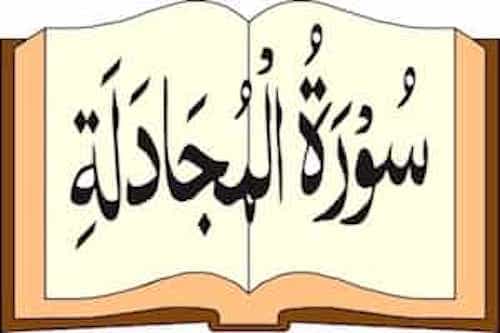 سُوْرَةُ الْمُجَادَلَةِ